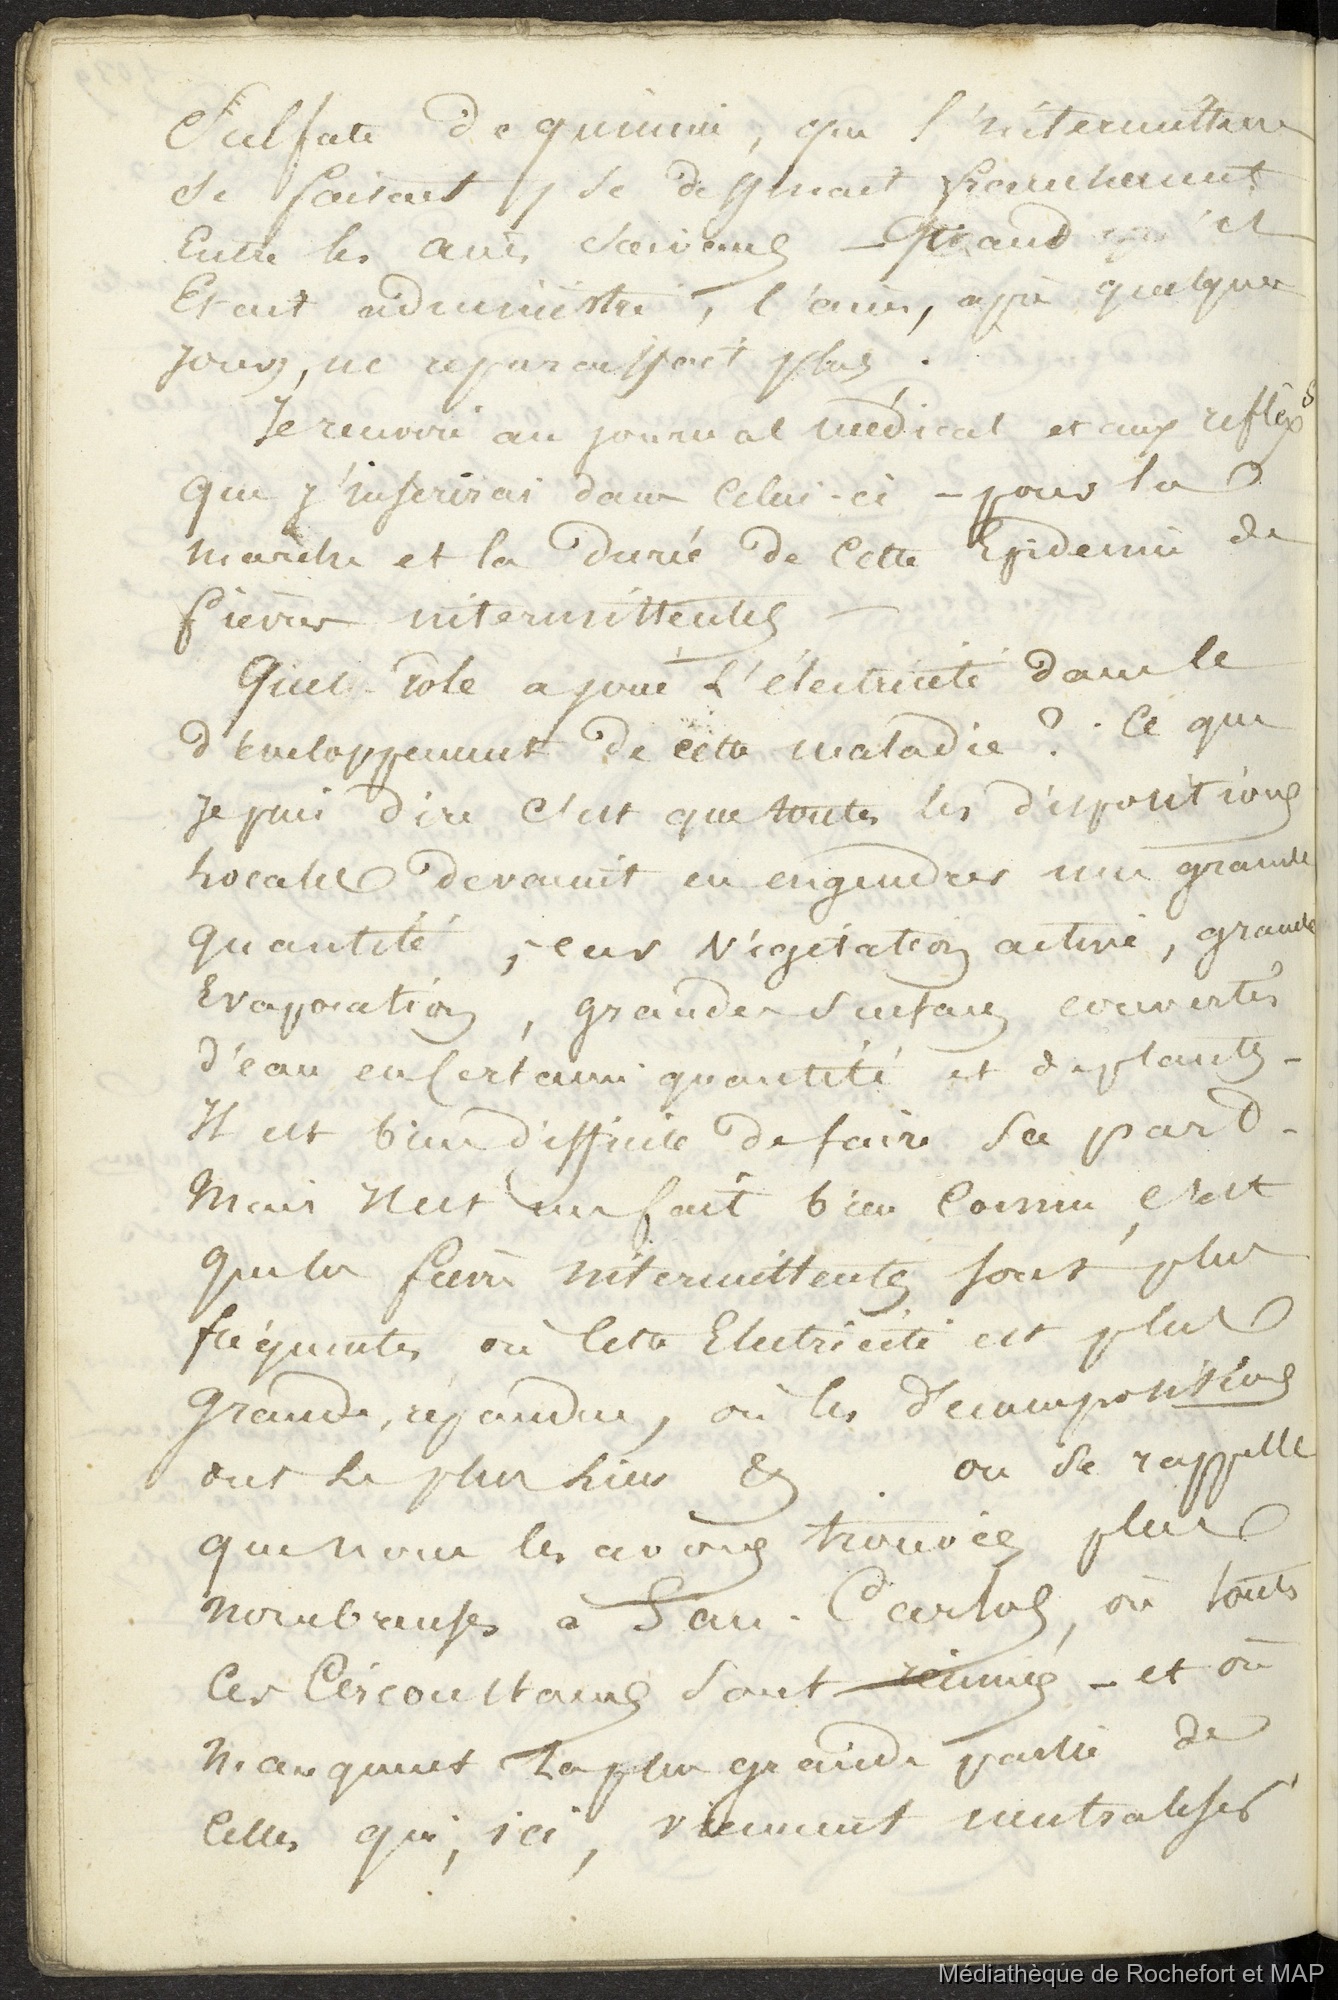 Sulfate de quinine, que l'intermittence
se faisant, se dessinait franchement
Entre les accès suivans – Quand il
Etait administré, l'accès, après quelques
jours, ne reparaissait plus.
Je renvoie au journal médical et aux reflexs
que j'insérerai dans celui-ci – pour la
marche et la durée de cette Epidemie de
fièvres intermittentes –
Quel rôle a joué L'électricité dans le
développement de cette maladie ? Ce que
Je puis dire c'est que toutes les dispositions
Locales devaient en engendrer une grande
quantité, car végétation active, grande
Evaporation, grandes surfaces couvertes
d'eau en certaine quantité et de plantes –
Il est bien difficile de faire sa part –
Mais Il est un fait bien connu, c'est
que les fièvres intermittentes sont plus
fréquentes où cette Electricité est plus
grande, répandue, où les décompositions
ont le plus lieu &. on se rappelle
que nous les avons trouvées plus
nombreuses à San-Carlos, où toutes
ces Circonstances sont réunies – et où
manquent la plus grande partie de
celles qui, ici, viennent neutraliser
Médiathèque de Rochefort et MAP